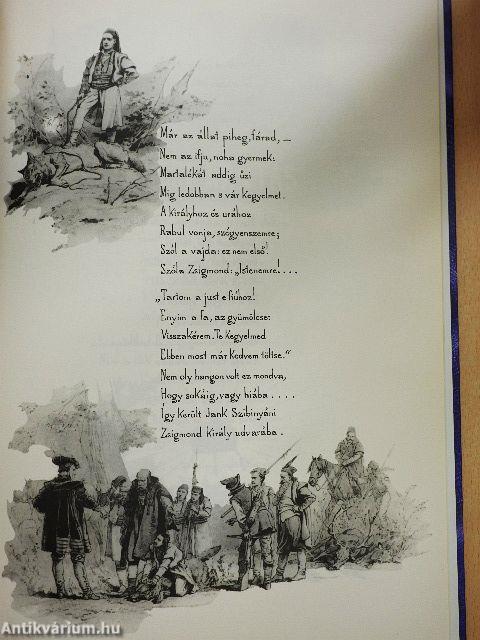 Már az állat piheg, fárad, —
Nem az ifju, noha gyermek:
Martalékát addig űzi
Mig ledobban s vár Kegyelmet.
A Királyhoz és urához
Rabul vonja, szégyenszemre;
Szól a vajda: ez nem első!
Szóla Zsigmond: „Istenemre....
„Tartom a just e fiúhoz!
Enyim a fa, az gyümölcse:
Visszakérem. Te Kegyelmed
Ebben most már Kedvem töltse."
Nem oly hangon volt ez mondva,
Hogy sokáig, vagy hiába ....
Így Került Jank Szibinyáni
Zsigmond Király udvarába.
Antikvárium.hu